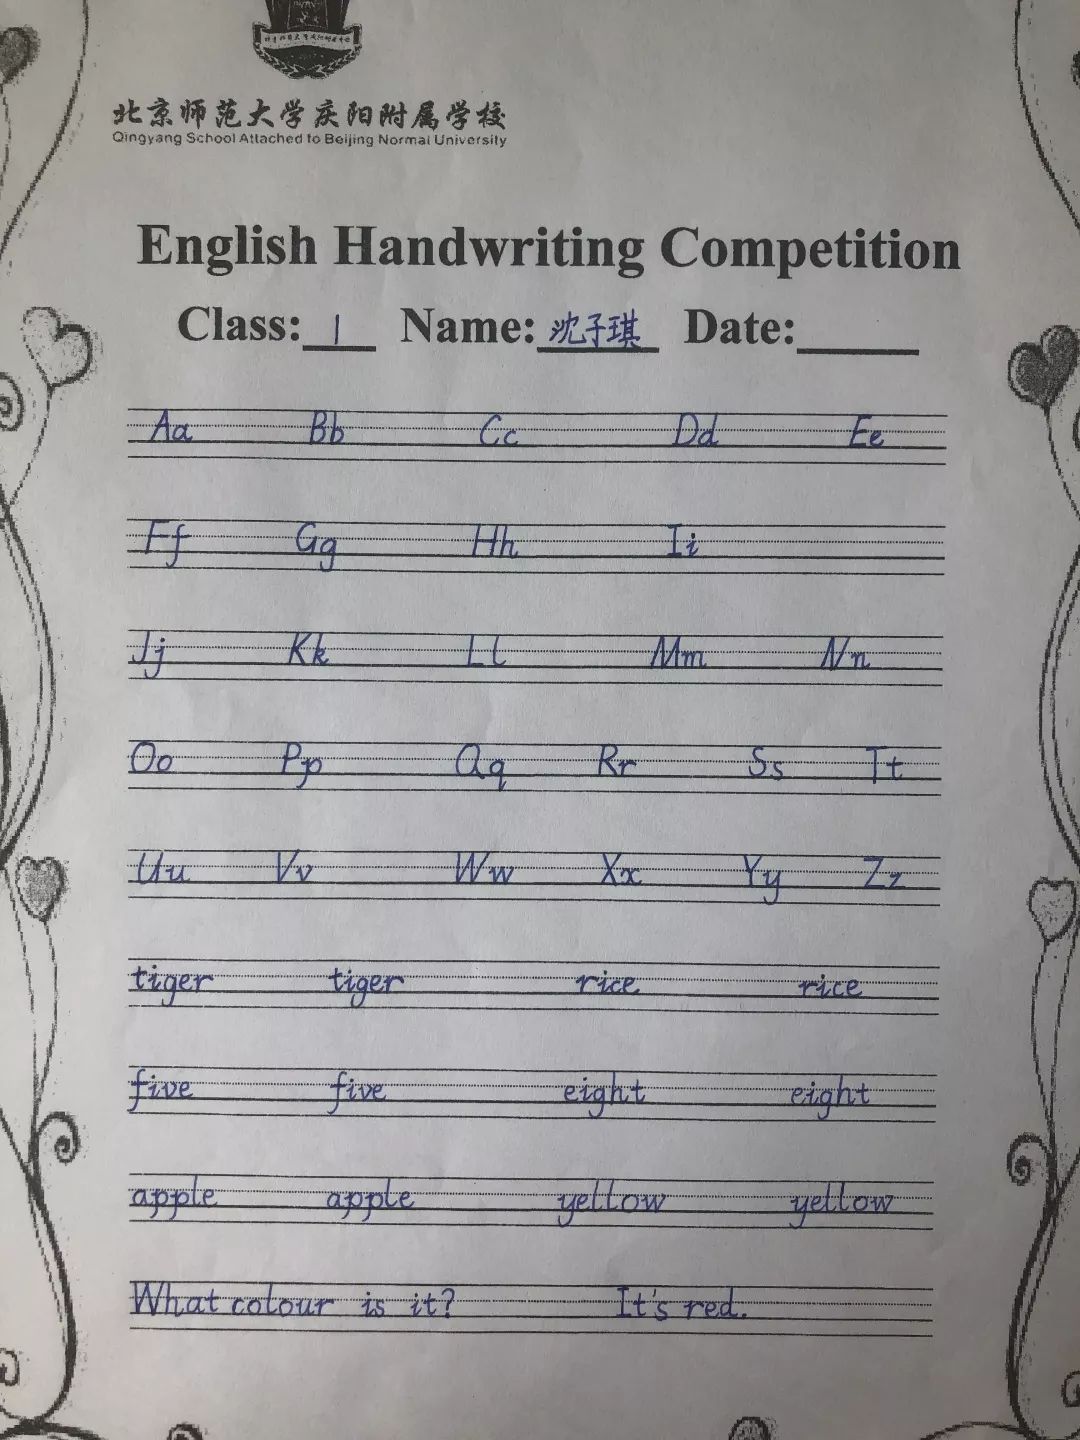 北京师范大学庆阳附属学校
Qingyang School Attached to Beijing Normal University
English Handwriting Competition
Class: 1 Name: 沈子琪 Date:
Aa Bb Cc Dd Ee
Ff Gg Hh Ii
Jj Kk Ll Mm Nn
Oo Pp Qq Rr Ss Tt
Uu Vv Ww Xx Yy Zz
tiger tiger rice rice
five five eight eight
apple apple yellow yellow
What colour is it? It's red.